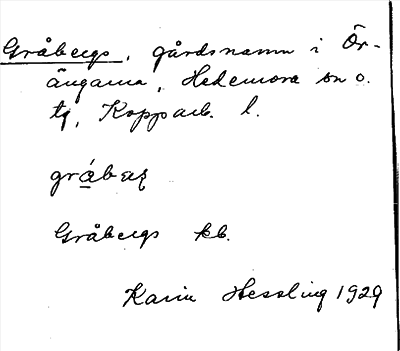 Gråbergs, gårdsnamn i Ör-
ängarna, Hedemora sn o.
tg, Kopparb. l.
gråbæȥ
Gråbergs kb.
Karin Hessling 1929